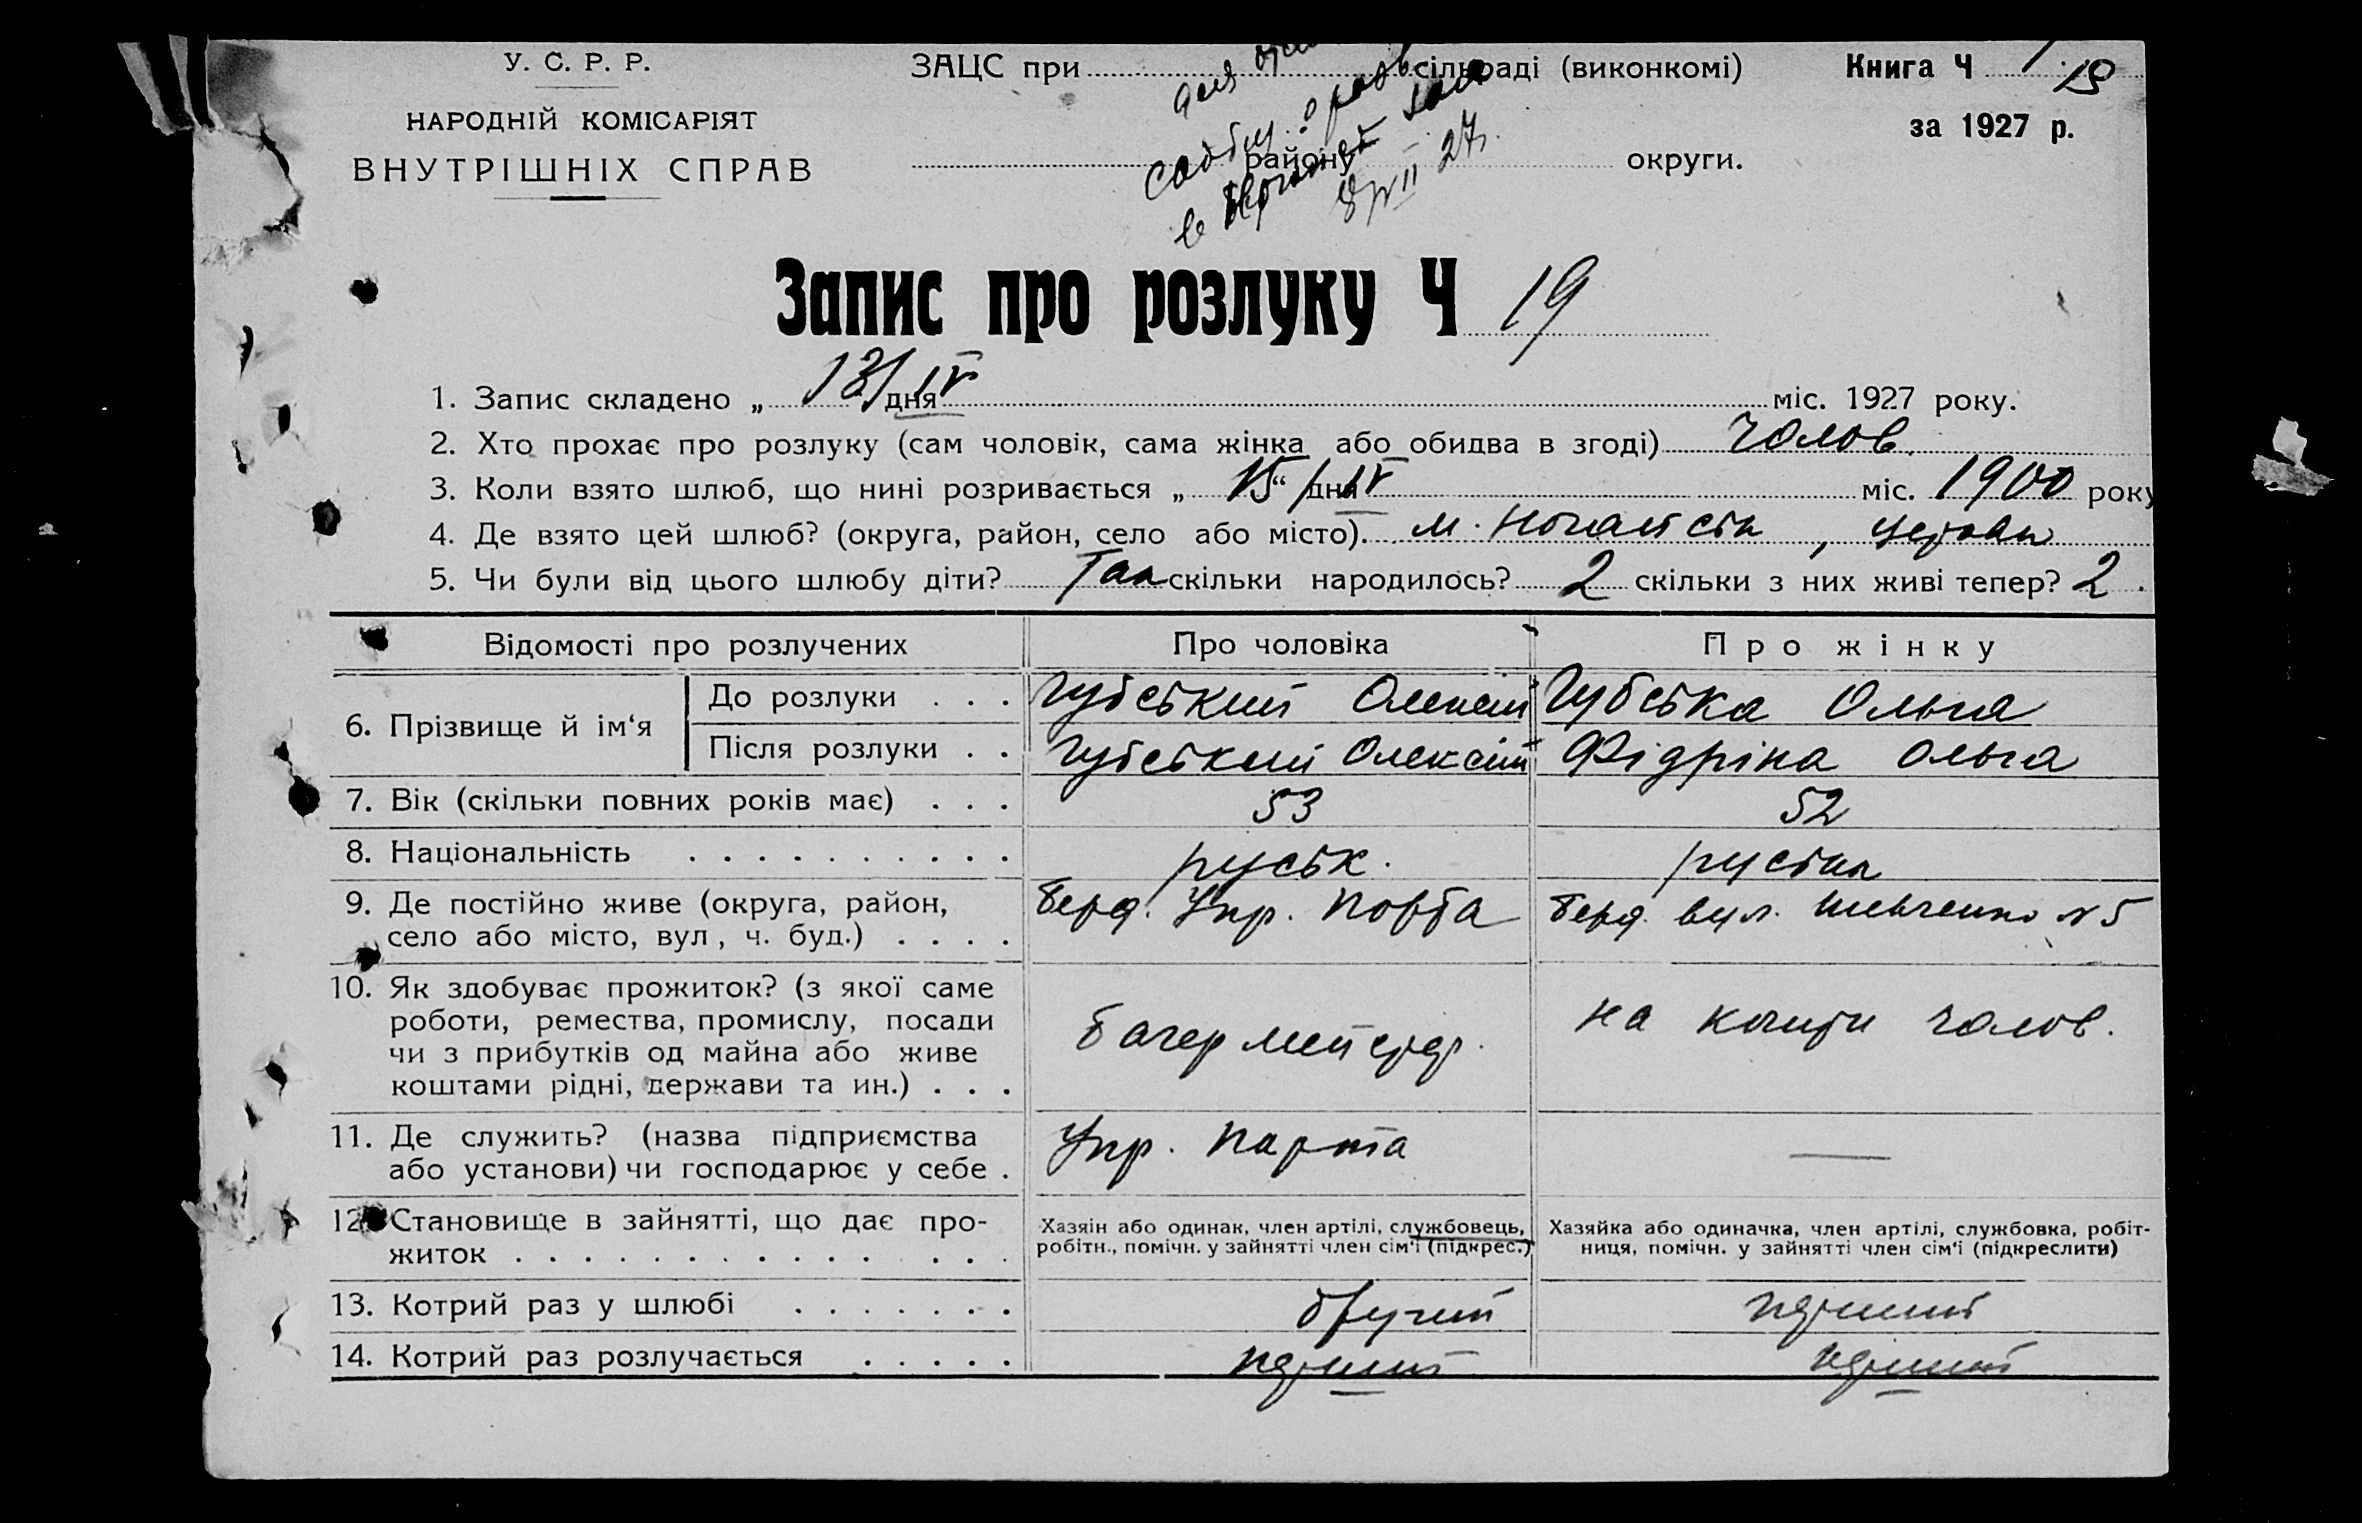 У. С. Р. Р.
НАРОДНІЙ КОМІСАРІЯТ
ВНУТРІШНІХ СПРАВ
ЗАЦС при сільраді (виконкомі)
району округи.
в 27
Книга Ч 1
19
за 1927 р.
Запис про розлуку Ч 19
1. Запис складено „ 13/IV дня міс. 1927 року.
2. Хто прохає про розлуку (сам чоловік, сама жінка або обидва в згоді) чолов.
3. Коли взято шлюб, що нині розривається „ 15 “ /IV дня міс. 1900 року
4. Де взято цей шлюб? (округа, район, село або місто). м. Ногайськ, церква
5. Чи були від цього шлюбу діти? Так скільки народилось? 2 скільки з них живі тепер? 2.
Відомості про розлучених Про чоловіка Про жінку
6. Прізвище й ім‘я
До розлуки . . . Губський Олексій Губська Ольга
Після розлуки . . Губський Олексій Фідріна Ольга
7. Вік (скільки повних років має) . . . 53 52
8. Національність . . . . . . . . . . руськ. руськ
9. Де постійно живе (округа, район, Берд. Упр. Порта Берд. вул. Шевченко № 5
село або місто, вул, ч. буд.) . . . .
10. Як здобуває прожиток? (з якої саме
роботи, ремества, промислу, посади багермейстр. на кошти чолов.
чи з прибутків од майна або живе
коштами рідні, держави та ин.) . . .
11. Де служить? (назва підприємства Упр. Порта —
або установи) чи господарює у себе .
12. Становище в зайнятті, що дає про- Хазяін або одинак, член артілі, службовець, Хазяйка або одиначка, член артілі, службовка, робіт-
житок . . . . . . . . . . . . робітн., помічн. у зайнятті член сім‘і (підкрес.) ниця, помічн. у зайнятті член сім‘і (підкреслити)
13. Котрий раз у шлюбі . . . . . . . другий перший
14. Котрий раз розлучається . . . . . перший перший